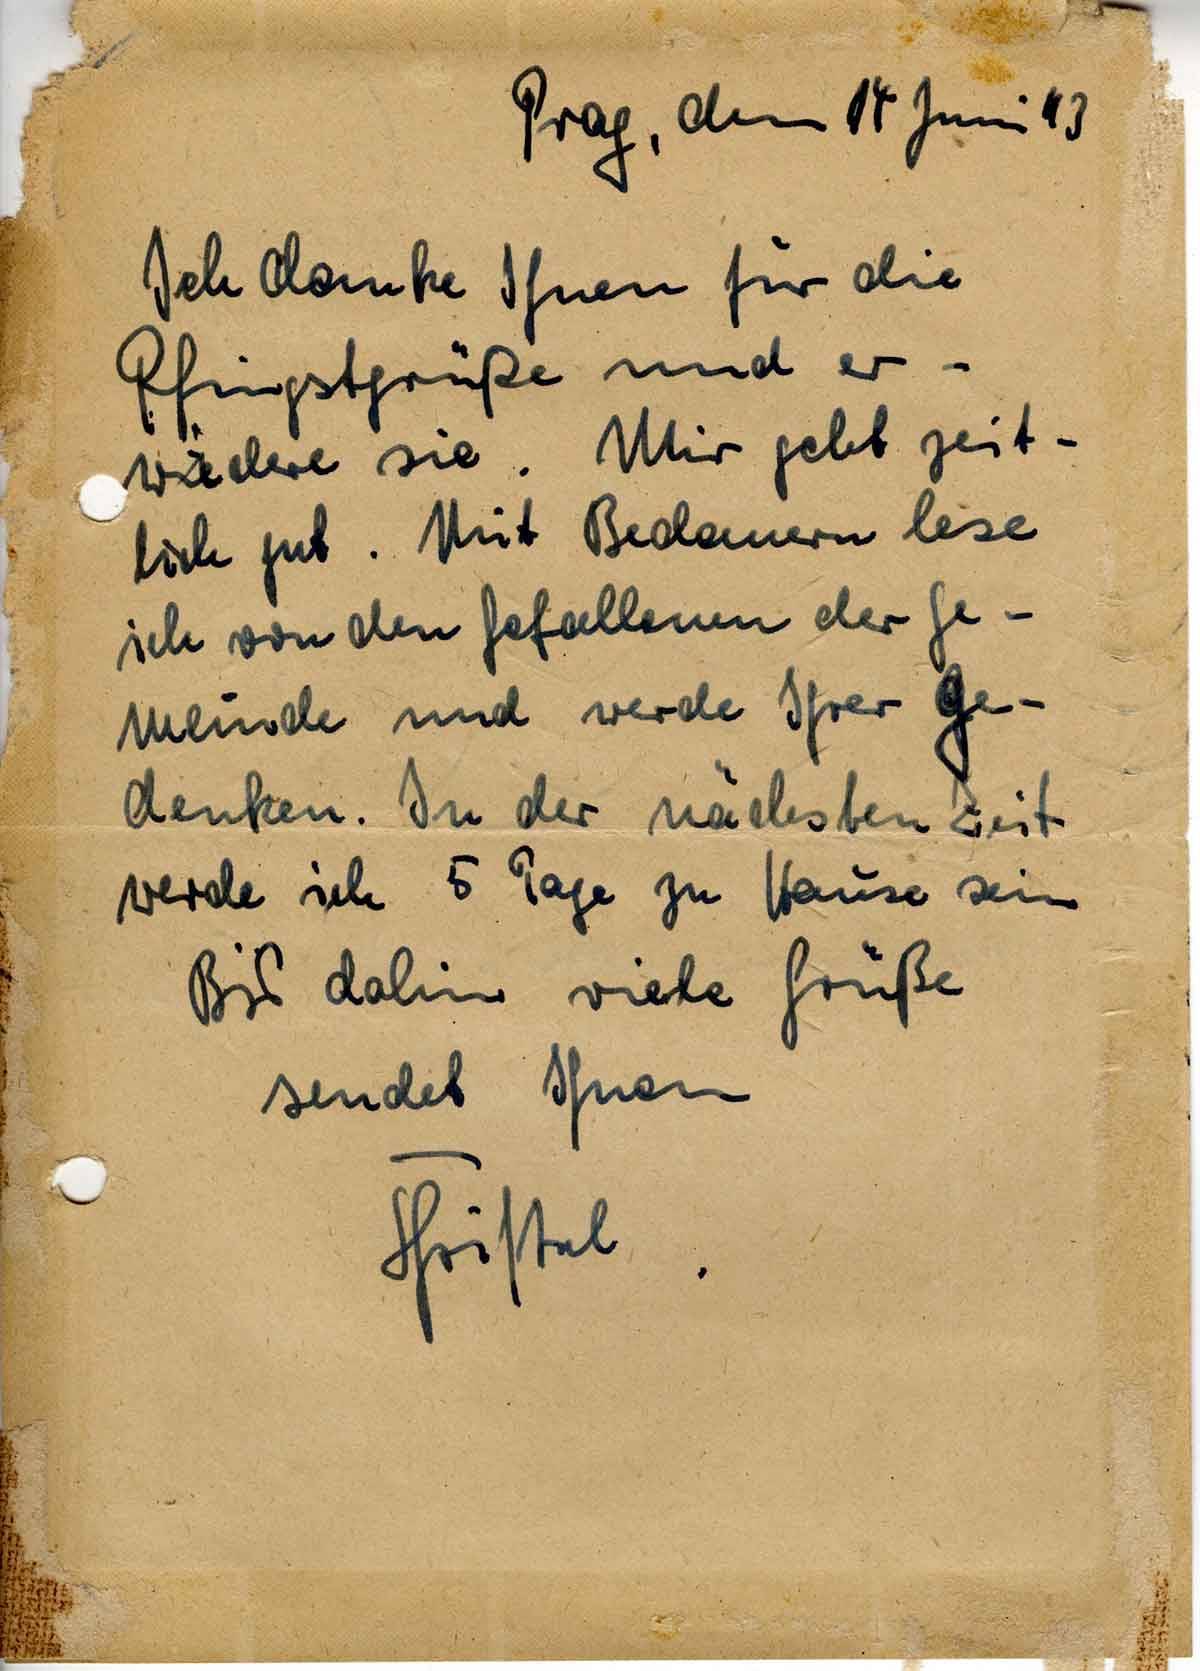 Prag, den 14 Juni 43
Ich danke Ihnen für die
Pfingstgrüße und er-
widere sie. Mir geht zeit-
lich gut. Mit Bedauern lese
ich von den Gefallenen der Ge-
meinde und werde Ihrer Ge-
denken. In der nächsten Zeit
werde ich 5 Tage zu Hause sein
Bis dahin viele Grüße
sendet Ihnen